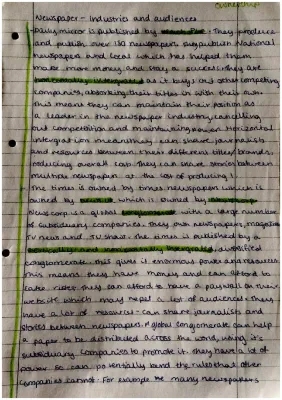 Ownership
Newspaper - Industries and audiences
- Daily mirror is published by . They produce
and publish over 130 newspapers, National
newspapers and local which has helped them
make more money and stay a success. They are
as it buys out other competing
companies, absorbing their titles in with their own.
This means they can maintain their position as
a leader in the newspaper industry, cancelling
out competition and maintaining power. Horizontal
intergration means they can share journalists
and resources between their different titles/brands,
reducing overall cost. They can share stories between
multiple newspaper at the cost of producing 1.
- The times is owned by times newspapers which is
owned by which is owned by
News corp is a global conglomerate with a large number
of subsidiary companies. They own newspapers, magazines
TV news and TV shows. The times is published by a
vertically and horizontally intergrated, diversified
conglomerate. This gives it enormous power and resources
This means they have money and can afford to
take risks. They can afford to have a paywall on their
website which may repel a lot of audience. They
have a lot of resources - can share journalists and
stories between newspapers. A global conglomerate can help
a paper to be distributed across the world, using it's
subsidiary companies to promote it. They have a lot of
power so can potentially bend the rules that other
companies cannot. For example the many newspapers